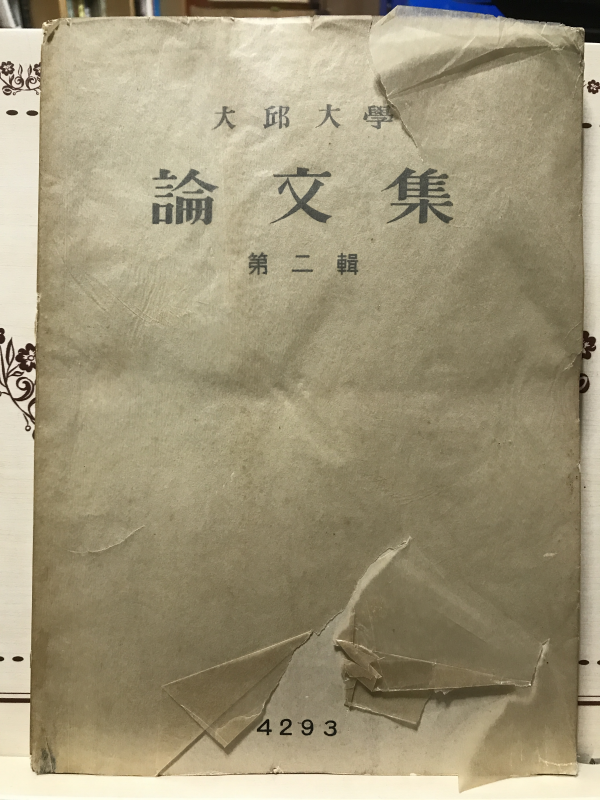 大邱大學
論文集
第二輯
4293